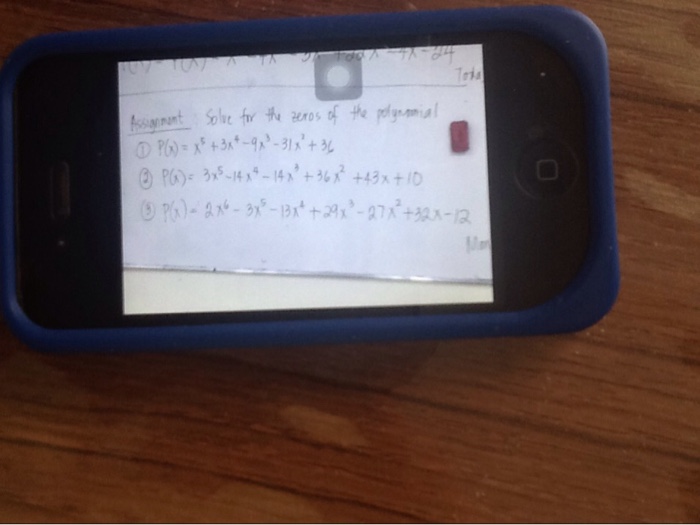 Assignment Solve for the zeros of the polynomial
① P(x) = x⁵ + 3x⁴ - 9x³ - 31x² + 36
② P(x) = 3x⁵ - 14x⁴ - 14x³ + 36x² + 43x + 10
③ P(x) = 2x⁶ - 3x⁵ - 13x⁴ + 29x³ - 27x² + 32x - 12